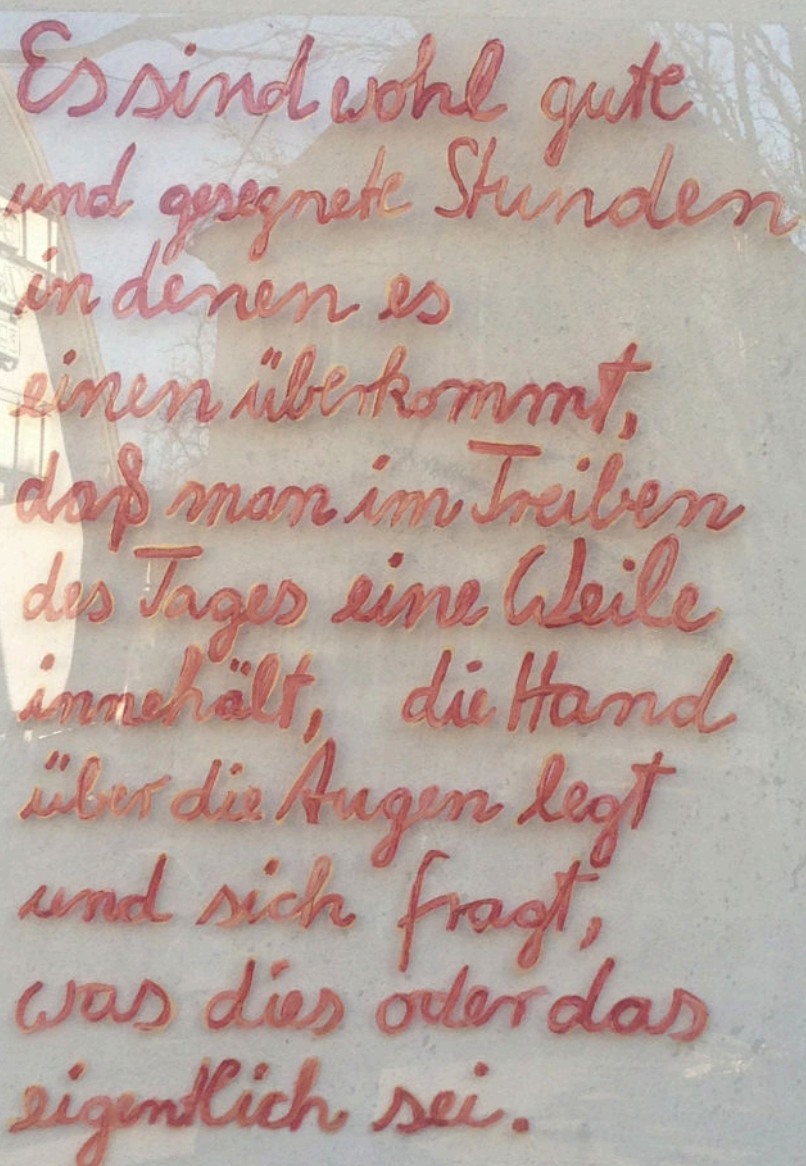 Es sind wohl gute
und gesegnete Stunden
in denen es
einen überkommt,
daß man im Treiben
des Tages eine Weile
innehält, die Hand
über die Augen legt
und sich fragt,
was dies oder das
eigentlich sei.